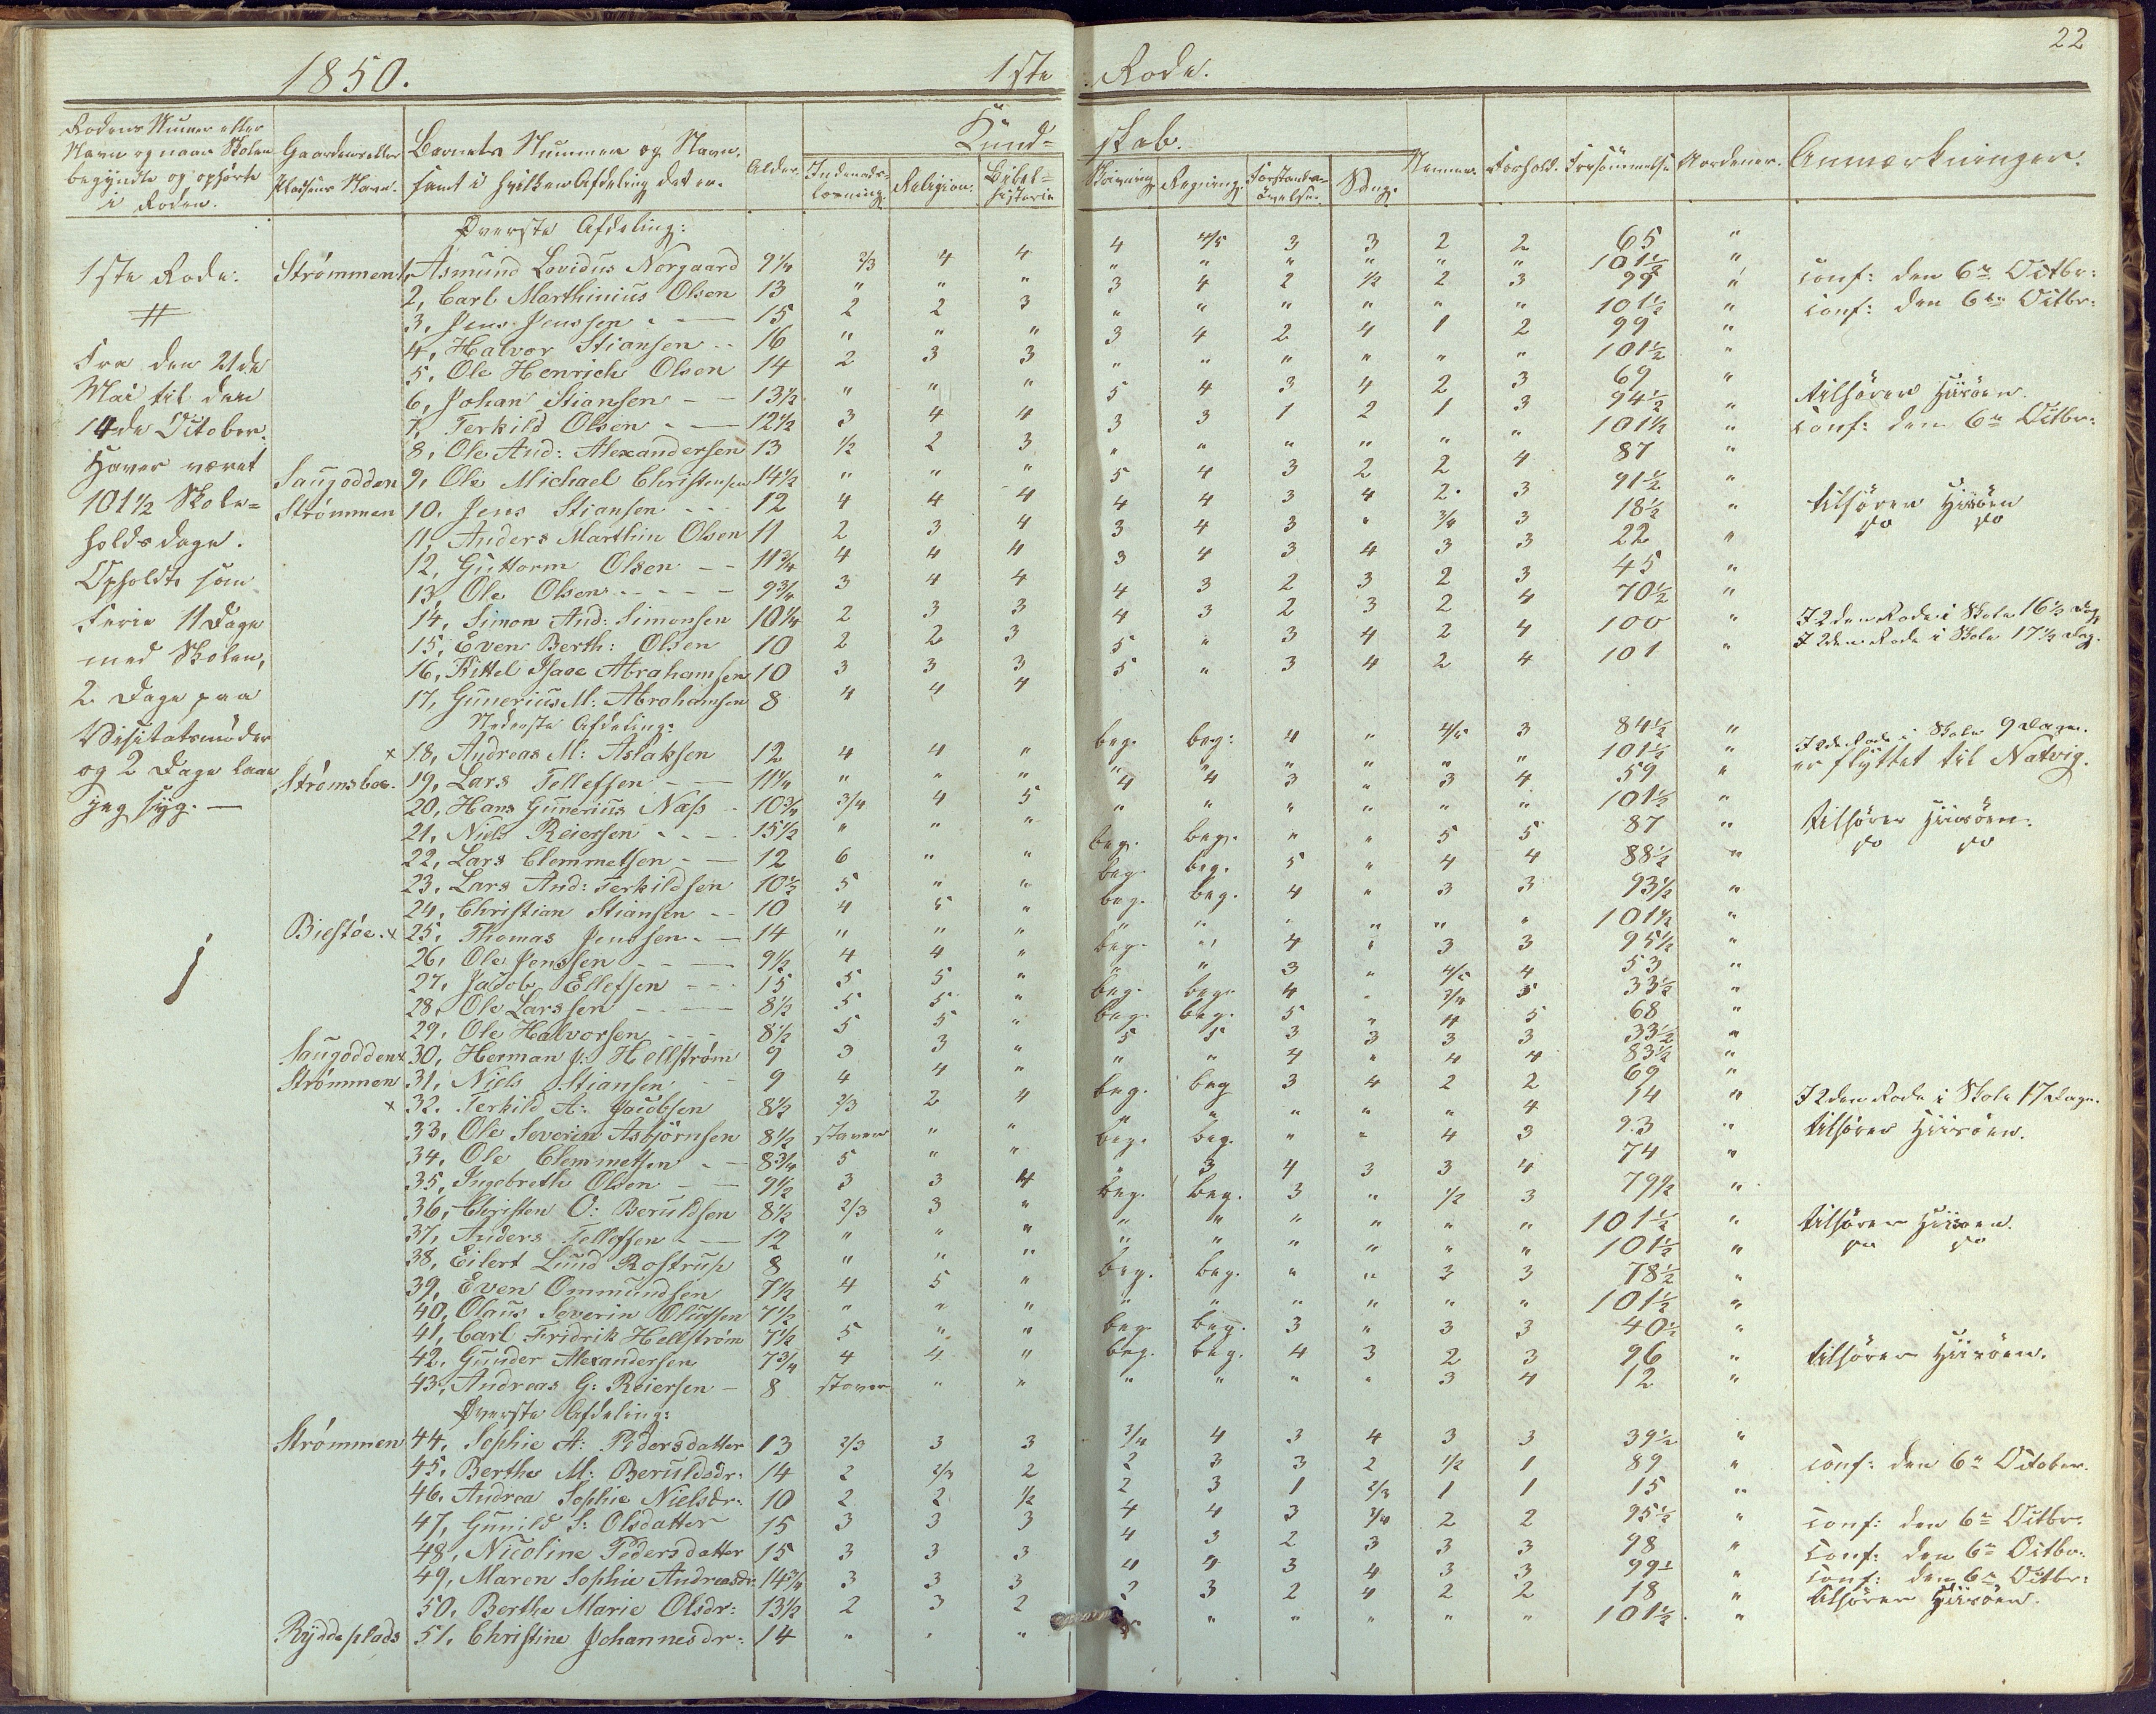 22
1850. 1ste Rode.
Rodens Numer eller Navn og naar Skolen begyndte og ophørte i Roden.
Gaardens eller Pladsens Navn.
Barnets Nummer og Navn, samt i hvilken Afdeling det er.
Alder.
Kund= skab.
Indenads- læsning. Religion. Bibel= historie Skrivning Regning. Forstands- øvelse. Sang.
Nemme. Forhold. Forsømmelse Anmærkninger.
1ste Rode.
Fra den 21de
Mai til den
14de October.
Haver været
101½ Skole=
holdsdage.
Opholdt som
Ferie 11 Dage
med Skolen,
2 Dage paa
Visitatsmøder
og 2 Dage laae
jeg syg. —
Øverste Afdeling:
Strømmen 1, Asmund Lovidus Norgaard 9¼ 2/3 4 4 4 4/5 3 3 2 2 65 "
2, Carl Marthinius Olsen 13 " " " " " " " " " 101½ " Conf: den 6te Octbr:
3, Jens Jenssen 15 2 2 3 3 4 2 ½ 2 3 99 " Conf: den 6te Octbr:
4, Halvor Stiansen 16 " " " " " " " " " 101½ "
5, Ole Henrich Olsen 14 2 3 3 3 4 2 4 1 2 99 "
6, Johan Stiansen 13½ " " " " " " " " " 101½ "
7, Terkild Olsen 12½ 3 4 4 5 4 3 4 2 3 69 " tilhører Hisöen.
8, Ole And: Alexandersen 13 ½ 2 3 3 3 1 2 1 3 94½ " Conf: den 6te Octbr:
Saugodden 9, Ole Michael Christensen 14½ " " " " " " " " " 101½ "
Strømmen 10, Jens Stiansen 12 4 4 4 5 4 3 2 2 4 87 "
11, Anders Marthin Olsen 11 2 3 4 4 4 3 4 2 3 91½ " tilhører Hisöen
12, Guttorm Olsen 11¾ 4 4 4 3 4 3 " 3/4 3 18½ " do do
13, Ole Olsen 9¾ 3 4 4 3 4 3 4 3 3 22 "
14, Simon And: Simonsen 10¼ 2 3 3 4 3 2 3 2 3 45 "
15, Even Berth: Olsen 10 2 2 3 4 3 2 3 2 4 70½ "
16, Kittel Isaac Abrahamsen 10 3 3 3 5 " 3 4 2 4 100 " I 2den Rode i Skole 16½ Dag
17, Gunerius M: Abrahamsen 8 4 4 4 5 " 3 4 2 4 101 " I 2den Rode i Skole 17½ Dag.
Nederste Afdeling:
× 18, Andreas M: Aslaksen 12 4 4 " beg. beg: 4 " 4/5 3 84½ " I 2de Rode i Skole 9 Dage.
Strømsboe. 19, Lars Tellefsen 11¼ " " " " " " " " " 101½ " er flyttet til Natvig.
20, Hans Gunerius Næss 10¾ 3/4 4 5 4 4 3 " 3 4 59 "
21, Niels Reiersen 15½ " " " " " " " " " 101½ " tilhører Hiisöen.
22, Lars Clemmetsen 12 6 " " beg. beg. " " 5 5 87 " do do
23, Lars And: Terkildsen 10½ 5 " " beg. beg. 5 " 4 4 88½ "
24, Christian Stiansen 10 4 5 " beg. beg. 4 " 3 3 93½ "
Biestöe. × 25, Thomas Jenssen 14 " " " " " " " " " 101½ "
26, Ole Jenssen 9½ 4 4 " beg. " 4 " 3 3 95½ "
27, Jacob Ellefsen 15 5 5 " " " 3 " 4/5 4 53 "
28, Ole Larssen 8½ 5 5 " beg. beg. 4 " 3/4 5 33½ "
29, Ole Halvorsen 8½ 5 5 " beg. beg. 5 " 4 5 68 "
Saugodden × 30, Herman J: Hellstrøm 9 3 3 " 5 5 3 3 3 3 33½ "
Strømmen 31, Niels Stiansen 9 4 4 " " " 4 " 4 4 83½ "
× 32, Terkild A: Jacobsen 8½ 2/3 2 4 beg. beg 3 4 2 2 69 "
33, Ole Severin Asbjørnsen 8½ staver " " " " " " " 4 14 " I 2den Rode i Skole 17 Dage.
34, Ole Clemmetsen 8¾ 5 " " beg. beg. " " 4 3 93 " tilhører Hiisöen.
35, Ingebreth Olsen 9½ 3 3 4 " 3 4 3 3 4 74 "
36, Christen O: Beruldsen 8½ 2/3 3 " beg. beg. 3 " ½ 3 79½ "
37, Anders Tellefsen 12 " " " " " " " " " 101½ " tilhører Hiisöen.
38, Eilert Lund Rostrup 8 " " " " " " " " " 101½ " do do
39, Even Ommundsen 7½ 4 5 " beg. beg. " " 3 3 78½ "
40, Olaus Severin Olufsen 7½ " " " " " " " " " 101½ "
41, Carl Fridrik Hellstrøm 7½ 5 " " beg. beg. 3 " 3 3 40½ "
42, Gunder Alexandersen 7¾ 4 4 " beg. beg. 4 3 2 3 96 " tilhører Hiisöen.
43, Andreas G: Reiersen 8 staver " " " " " " 3 4 12 "
Øverste Afdeling:
Strømmen 44, Sophie A: Pedersdatter 13 2/3 3 3 3/4 4 3 4 3 3 39½ "
45, Berthe M: Beruldsdr: 14 2 2/3 2 2 3 3 2 ½ 1 89 " Conf: den 6te October.
46, Andrea Sophie Nielsdr: 10 2 2 ½ 2 3 1 2/3 1 1 15 "
47, Gunild S: Olsdatter 15 3 3 3 4 4 3 3/4 2 2 95½ " Conf: den 6te Octbr:
48, Nicoline Pedersdatter 15 3 3 3 4 3 2 3 3 3 98 " Conf: den 6te Octbr:
49, Maren Sophie Andreasdr. 14¾ 3 3 3 4 4 3 4 3 3 99½ " Conf: den 6te Octbr:
50, Berthe Marie Olsdr: 13½ 2 3 2 2 3 2 4 2 2 18 " tilhører Hiisöen.
Ryddeplads 51, Christine Johannesdr: 14 " " " " " " " " " 101½ "